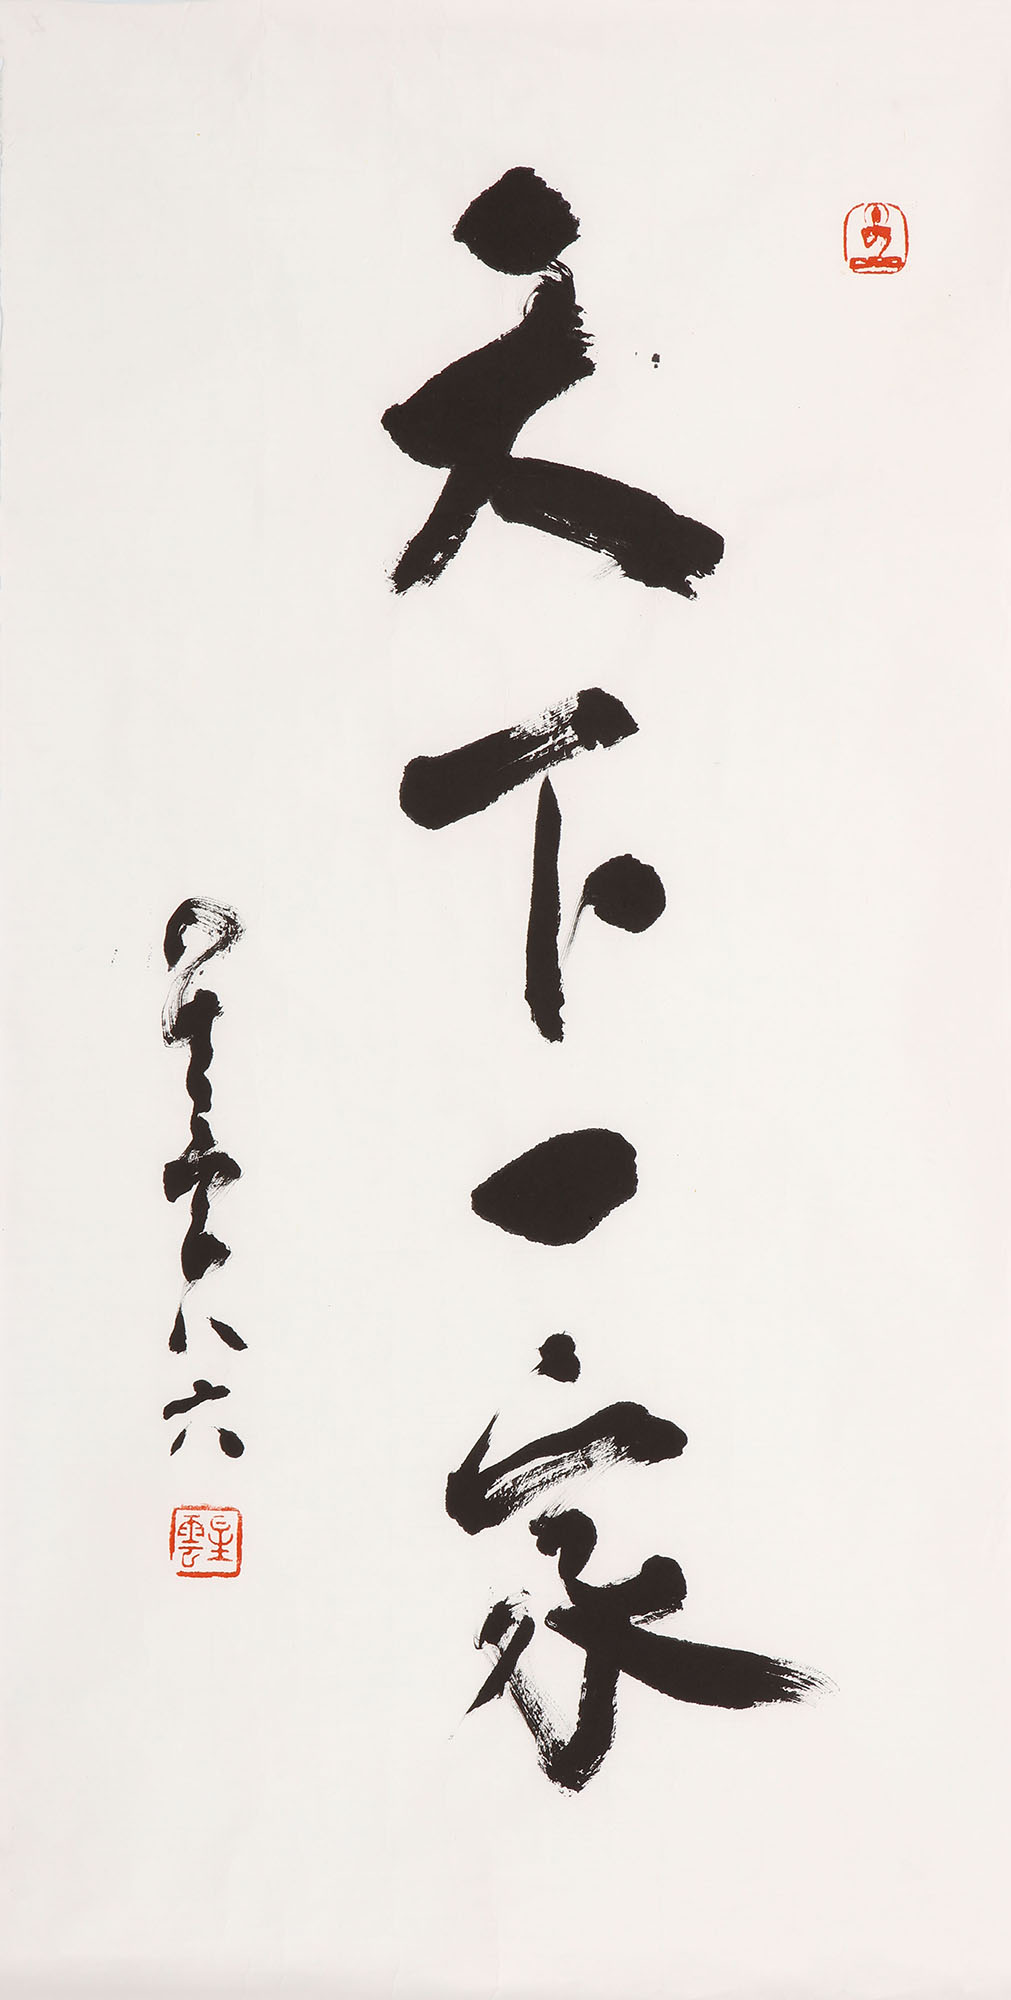 天下一家
星雲八六
星雲